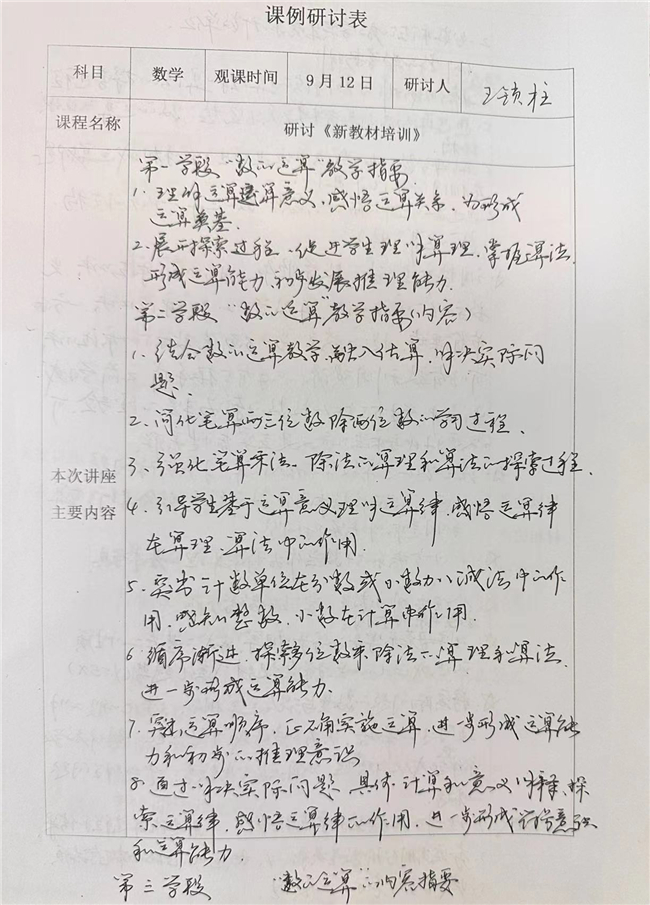 课例研讨表
科目 数学 观课时间 9月12日 研讨人 王锁柱
课程名称 研讨《新教材培训》
本次讲座
主要内容
第一学段“数的运算”教学指要
1. 理解运算意义,感悟运算关系,为形成
运算奠基.
2.展开探索过程,促进学生理解算理,掌握算法,
形成运算能力,初步发展推理能力.
第二学段 “数的运算”教学指要(内容)
1、结合数的运算教学,融入估算,解决实际问
题.
2、简化笔算两三位数除两位数的学习过程.
3、强化笔算乘法、除法的算理和算法的探索过程.
4、引导学生基于运算意义理解运算律,感悟运算律
在算理、算法中的作用.
5、突出计数单位在分数或小数加、减法中的作
用,感知整数,小数在计算中作用.
6、循序渐进,探索多位数乘除法的算理和算法,
进一步形成运算能力.
7、运算顺序,正确实施运算,进一步形成运算能
力和初步的推理意识
8、通过解决实际问题,具体计算和意义解释,探
索运算律,感悟运算律的作用,进一步形成符号意识
和运算能力.
第三学段 “数的运算”的内容指要